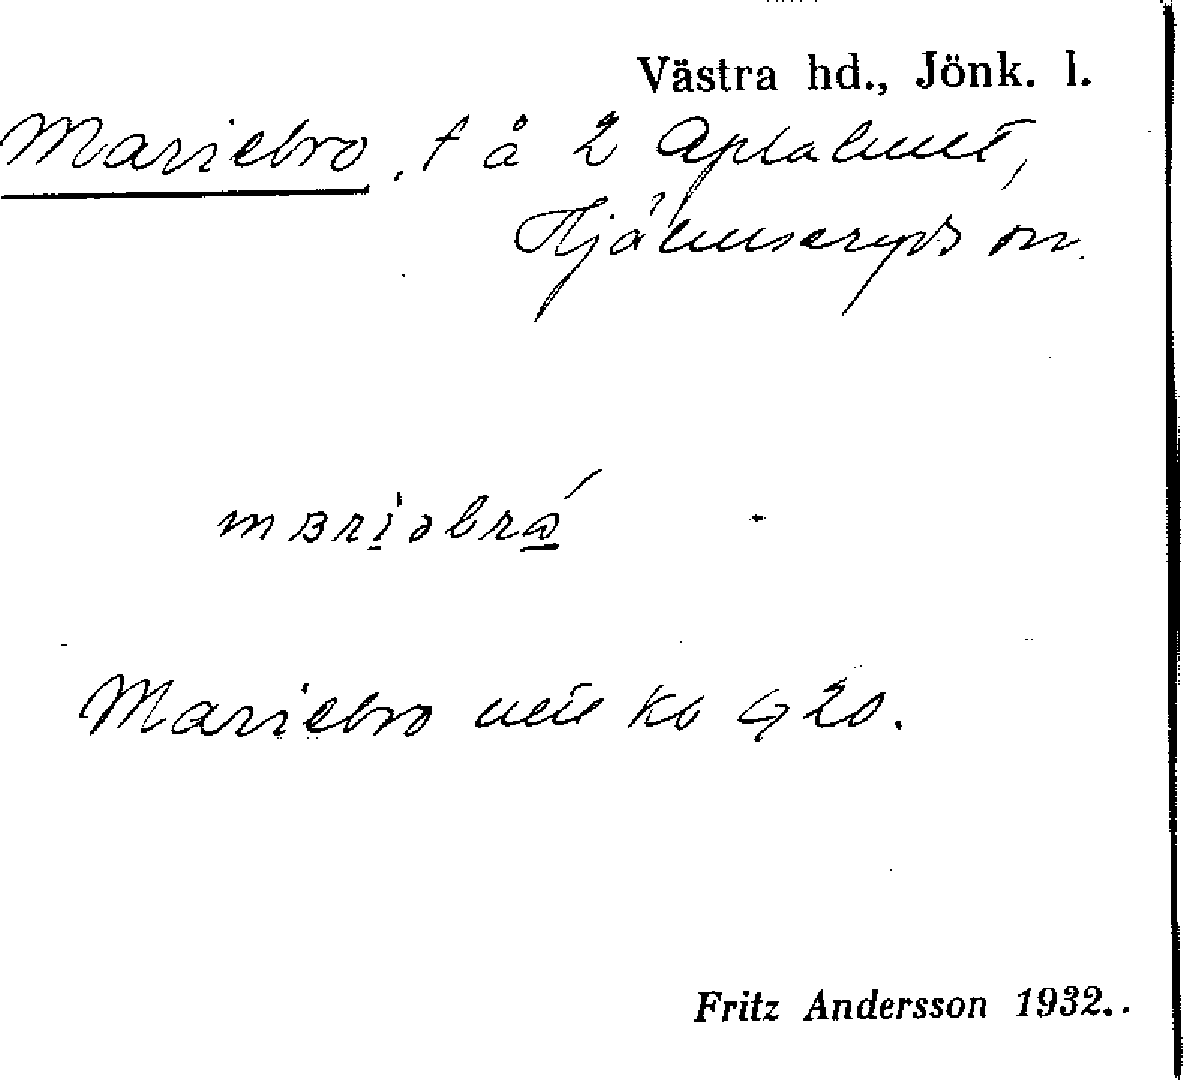 Västra hd., Jönk. l.
Mariebro, t å 2 Aplahult,
Hjälmseryds sn.
mariəbró
Mariebro
Fritz Andersson 1932..